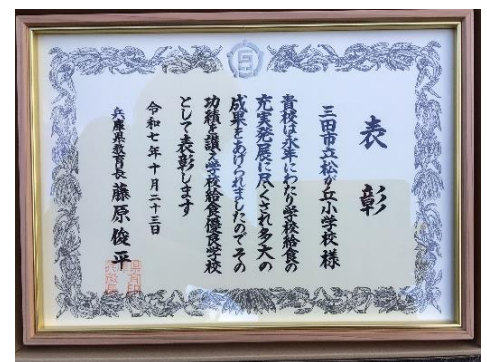 表彰
三田市立松が丘小学校 様
貴校は永年にわたり学校給食の
充実発展に尽くされ多大の
成果をあげられましたのでその
功績を讃え学校給食優良学校
として表彰します
令和七年十月二十三日
兵庫県教育長 藤原俊平